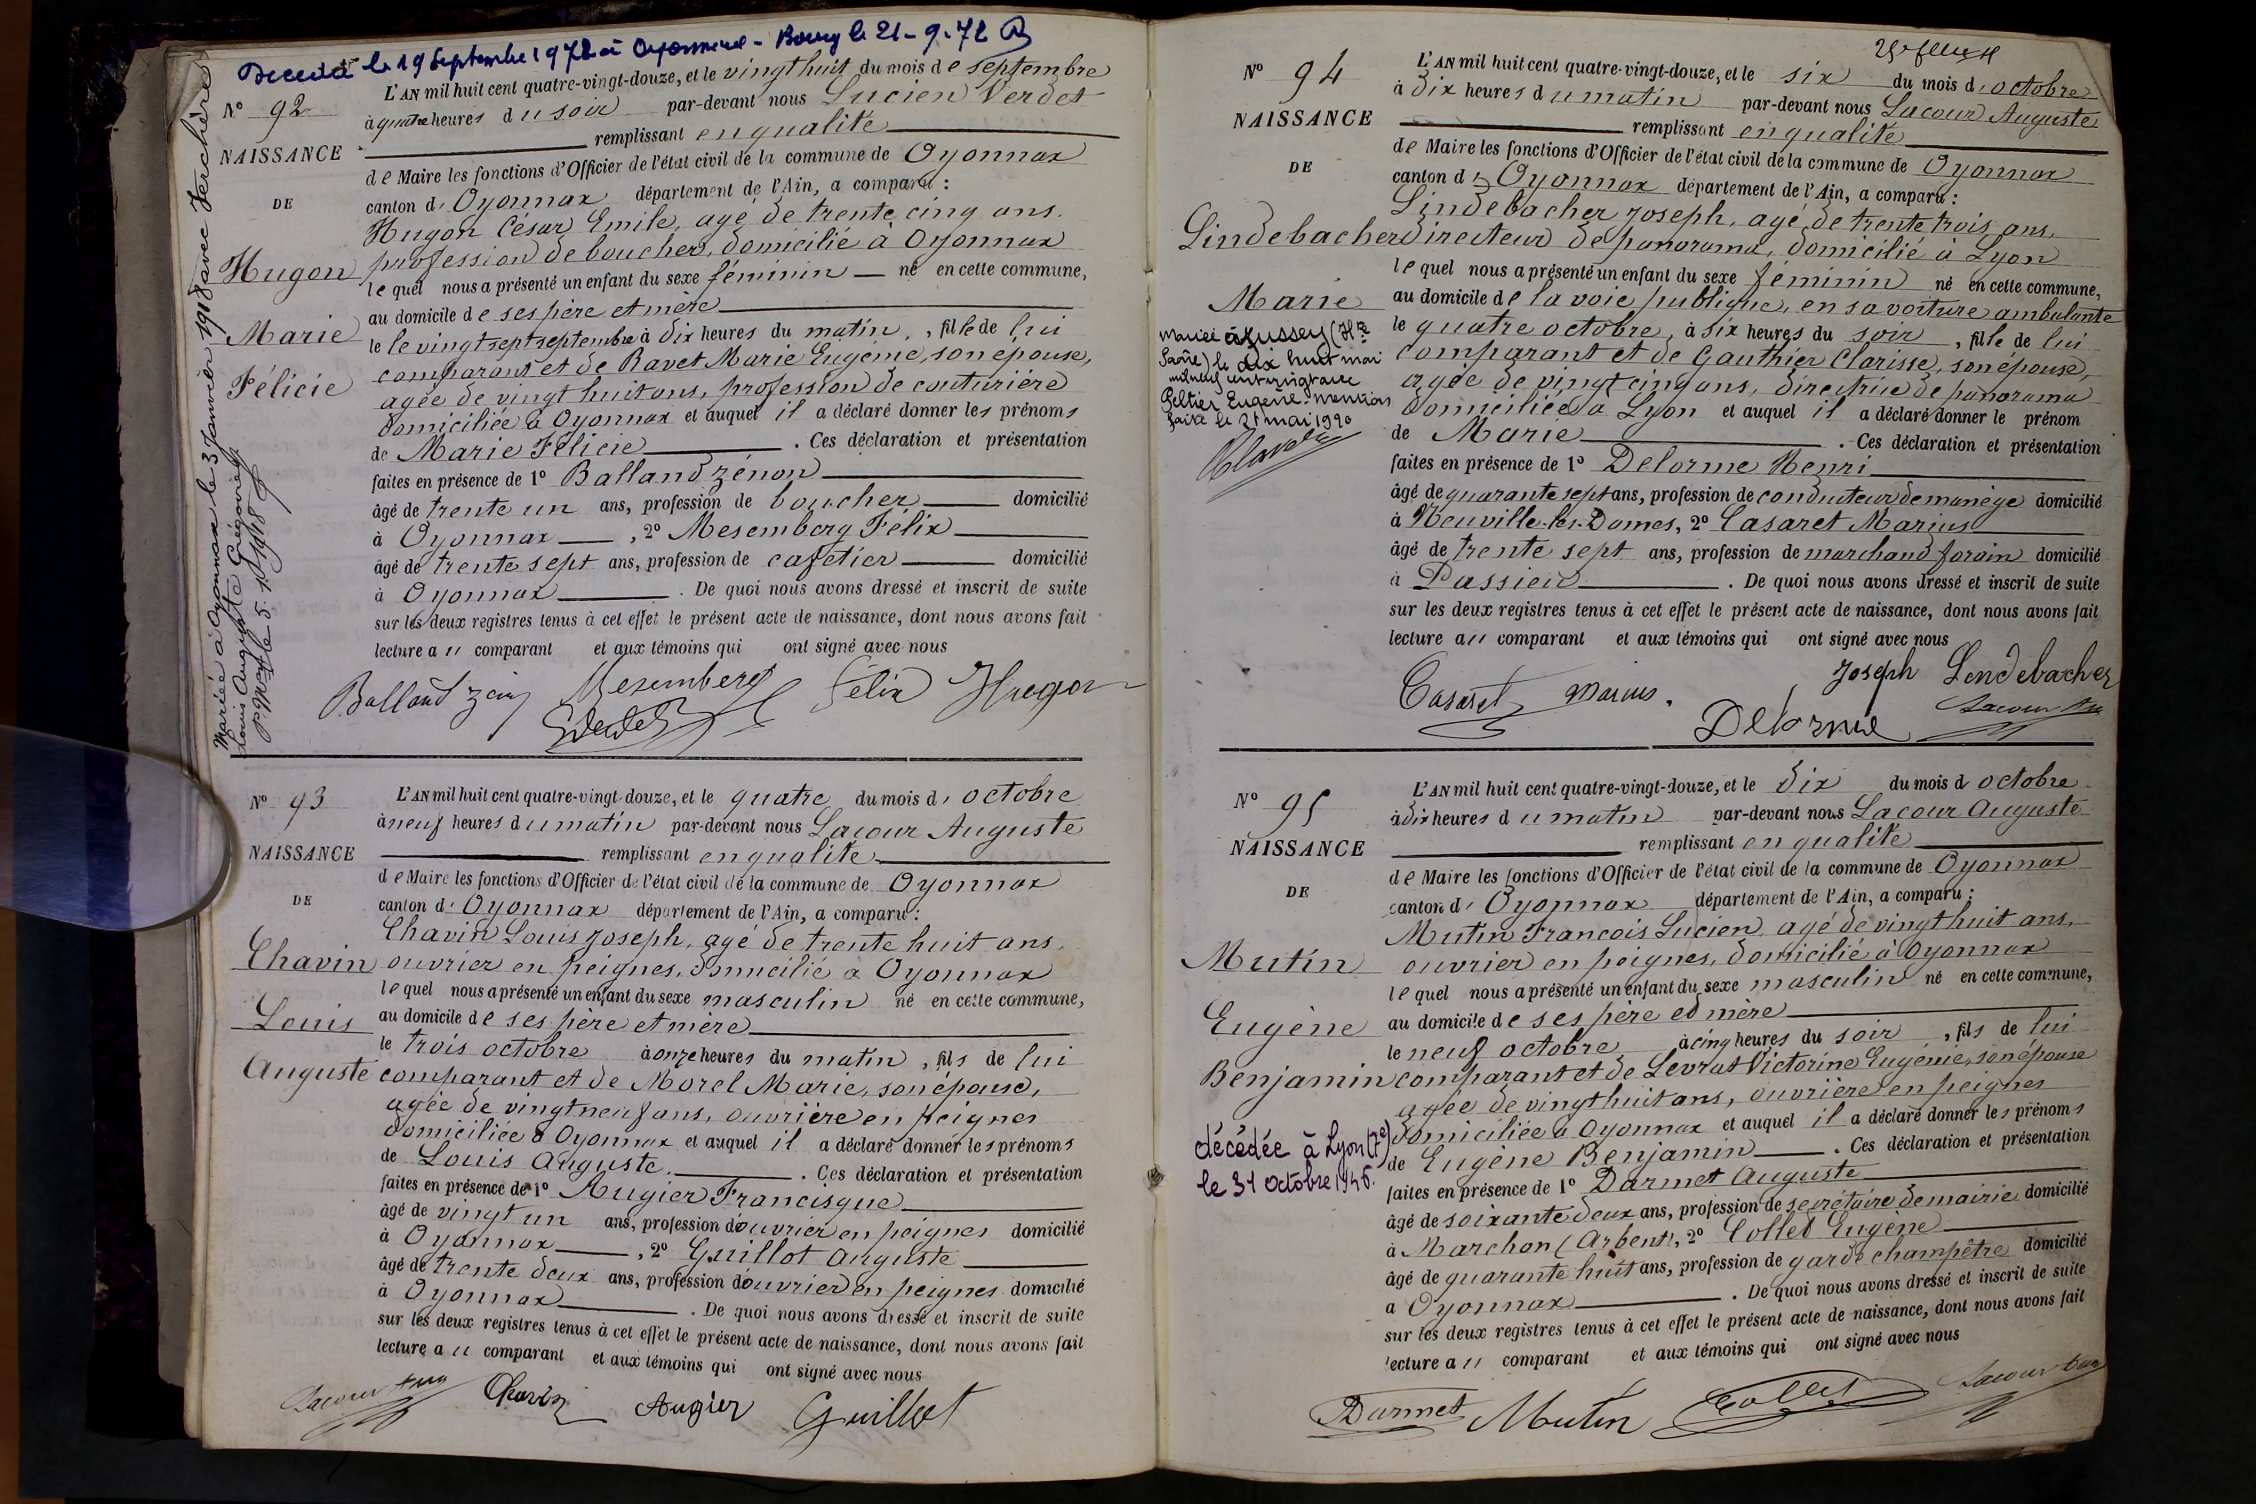 Décédée le 19 Septembre 1972 à Oyonnax - Bourg le 21-9-72
Mariée à Oyonnax le 3 Janvier 1918 avec Verchère
Louis Auguste Grégoire
le 5.1.1918
N° 92
NAISSANCE
DE
Hugon
Marie
Félicie
L'AN mil huit cent quatre-vingt-douze, et le vingt huit du mois de septembre
à quatre heures du soir par-devant nous Lucien Verdet
remplissant en qualité
de Maire les fonctions d'Officier de l'état civil de la commune de Oyonnax
canton d'Oyonnax département de l'Ain, a comparu :
Hugon César Emile, agé de trente cinq ans.
profession de boucher, domicilié à Oyonnax
lequel nous a présenté un enfant du sexe féminin né en cette commune,
au domicile de ses père et mère
le le vingt sept septembre à dix heures du matin, fille de lui
comparant et de Ravet Marie Eugénie, son épouse,
agée de vingt huit ans, profession de couturière
domiciliée à Oyonnax et auquel il a déclaré donner les prénoms
de Marie Félicie. Ces déclaration et présentation
faites en présence de 1° Balland Zénon
âgé de trente un ans, profession de boucher domicilié
à Oyonnax, 2° Mesemberg Félix
âgé de trente sept ans, profession de cafetier domicilié
à Oyonnax. De quoi nous avons dressé et inscrit de suite
sur les deux registres tenus à cet effet le présent acte de naissance, dont nous avons fait
lecture au comparant et aux témoins qui ont signé avec nous
Mesemberg Félix Hugon
N° 93
NAISSANCE
DE
Chavin
Louis
Auguste
L'AN mil huit cent quatre-vingt-douze, et le quatre du mois d'octobre
à neuf heures du matin par-devant nous Lacour Auguste
remplissant en qualité
de Maire les fonctions d'Officier de l'état civil de la commune de Oyonnax
canton d'Oyonnax département de l'Ain, a comparu :
Chavin Louis Joseph, agé de trente huit ans.
ouvrier en peignes, domicilié à Oyonnax
lequel nous a présenté un enfant du sexe masculin né en cette commune,
au domicile de ses père et mère
le trois octobre à onze heures du matin, fils de lui
comparant et de Morel Marie, son épouse,
agée de vingt neuf ans, ouvrière en peignes
domiciliée à Oyonnax et auquel il a déclaré donner les prénoms
de Louis Auguste. Ces déclaration et présentation
faites en présence de 1° Augier Francisque
âgé de vingt un ans, profession d'ouvrier en peignes domicilié
à Oyonnax, 2° Guillot Auguste
âgé de trente deux ans, profession d'ouvrier en peignes domicilié
à Oyonnax. De quoi nous avons dressé et inscrit de suite
sur les deux registres tenus à cet effet le présent acte de naissance, dont nous avons fait
lecture au comparant et aux témoins qui ont signé avec nous
Lacour Aug Chavin Augier Guillot
N° 94
NAISSANCE
DE
Lindebacher
Marie
Mariée à Jussey (Hte
Saône) le dix huit mai
mil neuf cent vingt avec
Peltier Eugène. Mention
faite le 21 mai 1920
L'AN mil huit cent quatre-vingt-douze, et le six du mois d'octobre
à dix heures du matin par-devant nous Lacour Auguste
remplissant en qualité
de Maire les fonctions d'Officier de l'état civil de la commune de Oyonnax
canton d'Oyonnax département de l'Ain, a comparu :
Lindebacher Joseph, agé de trente trois ans.
directeur de panorama, domicilié à Lyon
lequel nous a présenté un enfant du sexe féminin né en cette commune,
au domicile de la voie publique, en sa voiture ambulante
le quatre octobre, à six heures du soir, fille de lui
comparant et de Gauthier Clarisse, son épouse,
agée de vingt cinq ans, directrice de panorama
domiciliée à Lyon et auquel il a déclaré donner le prénom
de Marie. Ces déclaration et présentation
faites en présence de 1° Delorme Henri
âgé de quarante sept ans, profession de conducteur de manège domicilié
à Neuville-les-Dames, 2° Casaret Marius
âgé de trente sept ans, profession de marchand forain domicilié
à Passieu. De quoi nous avons dressé et inscrit de suite
sur les deux registres tenus à cet effet le présent acte de naissance, dont nous avons fait
lecture au comparant et aux témoins qui ont signé avec nous
Joseph Lindebacher
Casaret Marius. Delorme Lacour Aug
N° 95
NAISSANCE
DE
Mutin
Eugène
Benjamin
décédée à Lyon (7e)
le 31 octobre 1946.
L'AN mil huit cent quatre-vingt-douze, et le dix du mois d octobre
à dix heures du matin par-devant nous Lacour Auguste
remplissant en qualité
de Maire les fonctions d'Officier de l'état civil de la commune de Oyonnax
canton d'Oyonnax département de l'Ain, a comparu :
Mutin François Lucien, agé de vingt huit ans,
ouvrier en peignes, domicilié à Oyonnax
lequel nous a présenté un enfant du sexe masculin né en cette commune,
au domicile de ses père et mère
le neuf octobre à cinq heures du soir, fils de lui
comparant et de Levrat Victorine Eugénie, son épouse
agée de vingt huit ans, ouvrière en peignes
domiciliée à Oyonnax et auquel il a déclaré donner les prénoms
de Eugène Benjamin. Ces déclaration et présentation
faites en présence de 1° Darmet Auguste
âgé de soixante deux ans, profession de secrétaire de mairie domicilié
à Marchon (Arbent), 2° Collet Eugène
âgé de quarante huit ans, profession de garde champêtre domicilié
à Oyonnax. De quoi nous avons dressé et inscrit de suite
sur les deux registres tenus à cet effet le présent acte de naissance, dont nous avons fait
lecture au comparant et aux témoins qui ont signé avec nous
Darmet Mutin Collet Lacour Aug